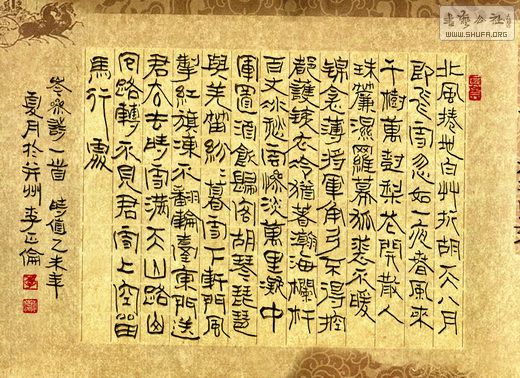 北風捲地白艸折胡天八月
即飛雪忽如一夜春風來
千樹萬樹梨花開散入
珠簾濕羅幕狐裘不暖
錦衾薄將軍角弓不得控
都護鐵衣冷猶著瀚海欄杆
百丈冰愁雲慘淡萬里凝中
軍置酒飲歸客胡琴琵琶
與羌笛紛〻暮雪下轅門風
掣紅旗凍不翻輪臺東門送
君去去時雪滿天山路山
回路轉不見君雪上空留
馬行處
岑參詩一首 時值乙未年
夏月於并州李正倫
WWW.SHUFA.ORG